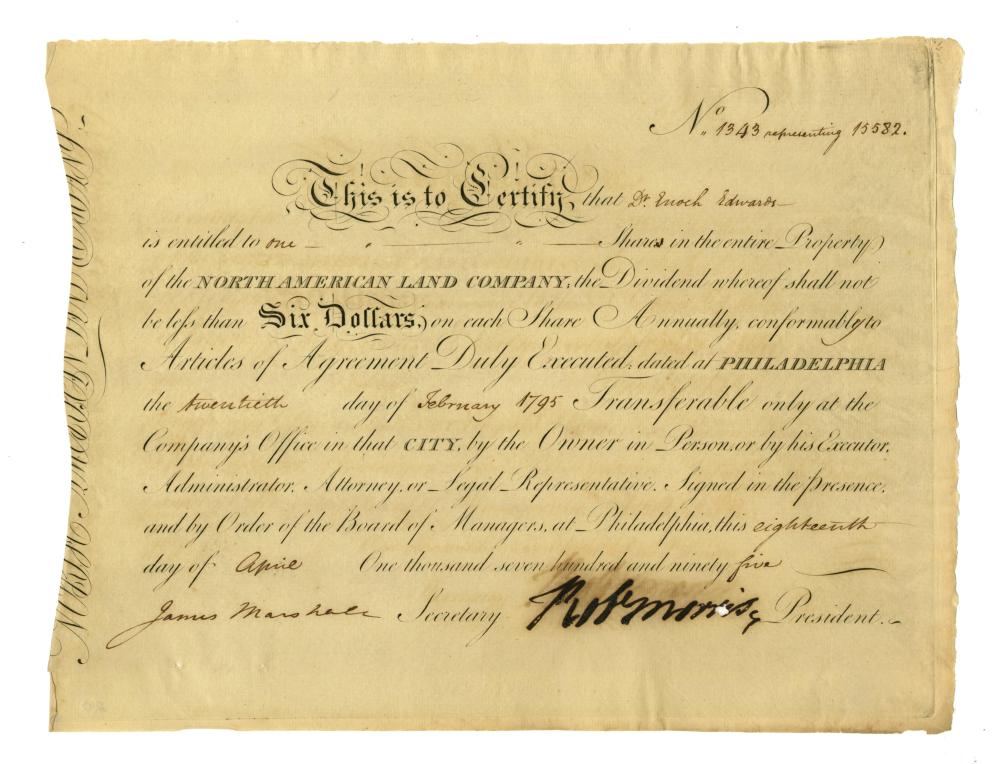 No. 1343 representing 15582.
This is to Certify, that Dr. Enoch Edwards
is entitled to one Shares in the entire Property
of the NORTH AMERICAN LAND COMPANY, the Dividend whereof shall not
be less than Six Dollars, on each Share Annually, conformably to
Articles of Agreement Duly Executed; dated at PHILADELPHIA
the twentieth day of February 1795 Transferable only at the
Company's Office in that CITY, by the Owner in Person, or by his Executor,
Administrator, Attorney, or Legal Representative. Signed in the presence,
and by Order of the Board of Managers, at Philadelphia, this eighteenth
day of April One thousand seven hundred and ninety five
James Marshall Secretary Robt Morris President.